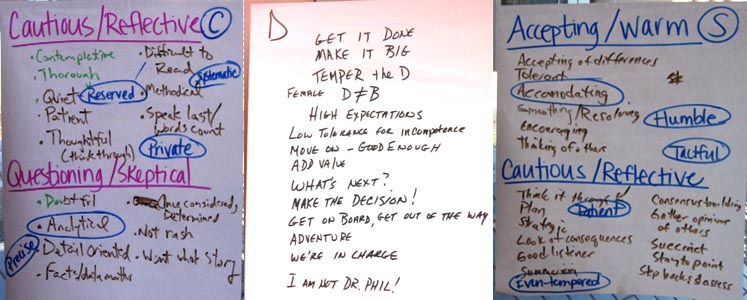 Cautious/Reflective C
• Contemplative
• Thorough
• Quiet
• Reserved
Patient
• Thoughtful
(think through)
• Difficult to
Read
Systematic
• Methodical
• Speak last/
words count
Private
Questioning/Skeptical
• Doubtful
• Analytical
Precise
• Detail Oriented
• Facts/data maths
• Once considered,
Determined
• Not rash
• Want what story
D
GET IT DONE
MAKE IT BIG
TEMPER the D
FEMALE D≠B
HIGH EXPECTATIONS
LOW TOLERANCE FOR INCOMPETENCE
MOVE ON – GOOD ENOUGH
ADD VALUE
WHAT'S NEXT?
MAKE THE DECISION!
GET ON BOARD, GET OUT OF THE WAY
ADVENTURE
WE'RE IN CHARGE
I AM NOT DR. PHIL!
Accepting/Warm S
Accepting of differences
Tolerant
Accomodating
Smoothing/Resolving
Encouraging
Thinking of others
Humble
Tactful
Cautious/Reflective
Think it through
Plan
Patient
Strategic
Look at consequences
Good listener
Summarizing
Even-tempered
Consensus building
Gather opinions
of others
Succinct
Stay to point
Step back & assess